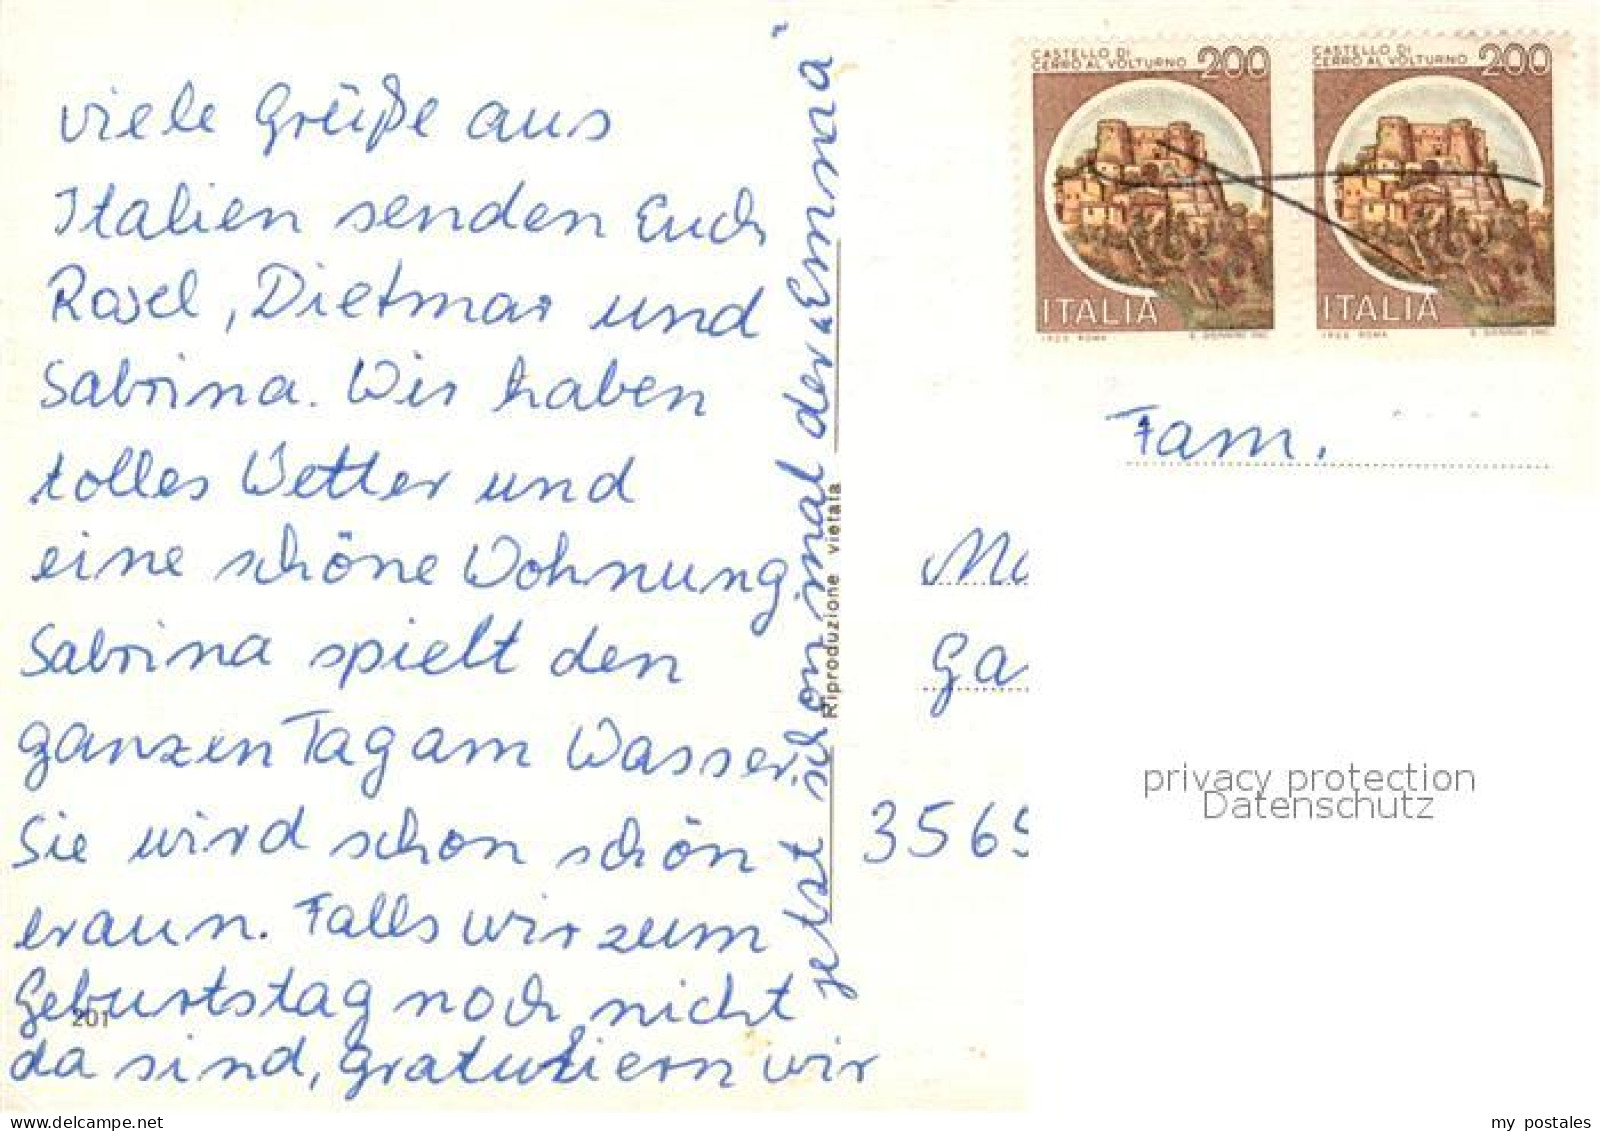 viele Grüße aus
Italien senden Euch
Rosel, Dietmar und
Sabrina. Wir haben
tolles Wetter und
eine schöne Wohnung.
Sabrina spielt den
ganzen Tag am Wasser.
Sie wird schon schön
eraun. Falls wir zum
Geburtstag noch nicht
da sind, gratulieren wir
jetzt schon mal der "Emma"
201
Riproduzione vietata
CASTELLO DI
CERRO AL VOLTURNO 200
ITALIA
CASTELLO DI
CERRO AL VOLTURNO 200
ITALIA
Fam.
Ga
3569
privacy protection
Datenschutz
delcampe.net
my_postales